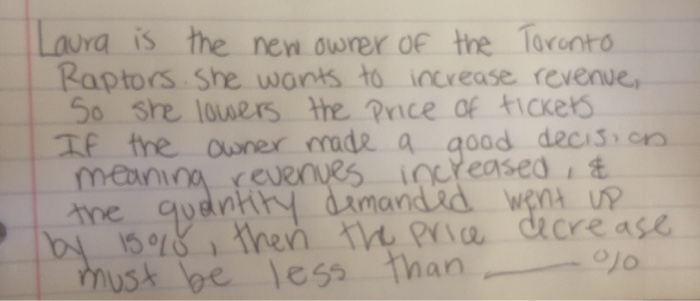 Laura is the new owner of the Toronto
Raptors. She wants to increase revenue,
So she lowers the price of tickets
If the owner made a good decision
meaning revenues increased, &
the quantity demanded went up
by 15%, then the price decrease
must be less than ____ %